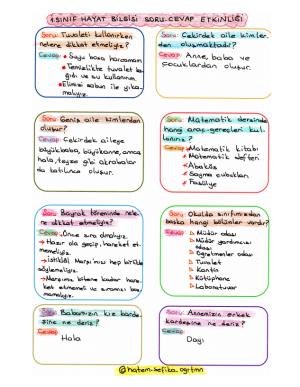 1.SINIF HAYAT BİLGİSİ SORU-CEVAP ETKİNLİĞİ
Soru: Tuvaleti kullanırken
nelere dikkat etmeliyiz?
Cevap:
• Suyu boşa harcamam
• Temizlikte tuvalet ka-
ğıdı ve su kullanırım.
• Elimizi sabun ile yıka-
malıyız.
Soru: Çekirdek aile kimler-
den oluşmaktadır?
Cevap: Anne, baba ve
çocuklardan oluşur.
Soru: Geniş aile kimlerden
oluşur?
Cevap: Çekirdek aileye
büyükbaba, büyükanne, amca
hala, teyze gibi akrabalar
da katılınca oluşur.
Soru: Matematik dersinde
hangi araç-gereçleri kul-
lanırız?
Cevap:
Matematik kitabı
Matematik defteri
Abaküs
Sayma çubukları
Fasülye
Soru: Bayrak töreninde nele-
re dikkat etmeliyiz?
Cevap:
→Önce sıra olmalıyız
→Hazır ola geçip, hareket et-
memeliyiz
→İstiklâl Marşı'nızı hep birlikte
söylemeliyiz.
→Marşımız bitene kadar hare-
ket etmemeli ve sıramızı boz-
mamalıyız.
Soru: Okulda sınıfımızdan
başka hangi bölümler vardır?
Cevap:
▷ Müdür odası
▷ Müdür yardımcısı
odası
▷ Öğretmenler odası
▷ Tuvalet
▷ Kantin
▷ Kütüphane
▷ Laboratuvar
Soru: Babamızın kız karde-
şine ne deriz?
Cevap:
Hala
Soru: Annemizin erkek
kardeşine ne deriz?
Cevap:
Dayı
@hatem-sefika.ogrtmn